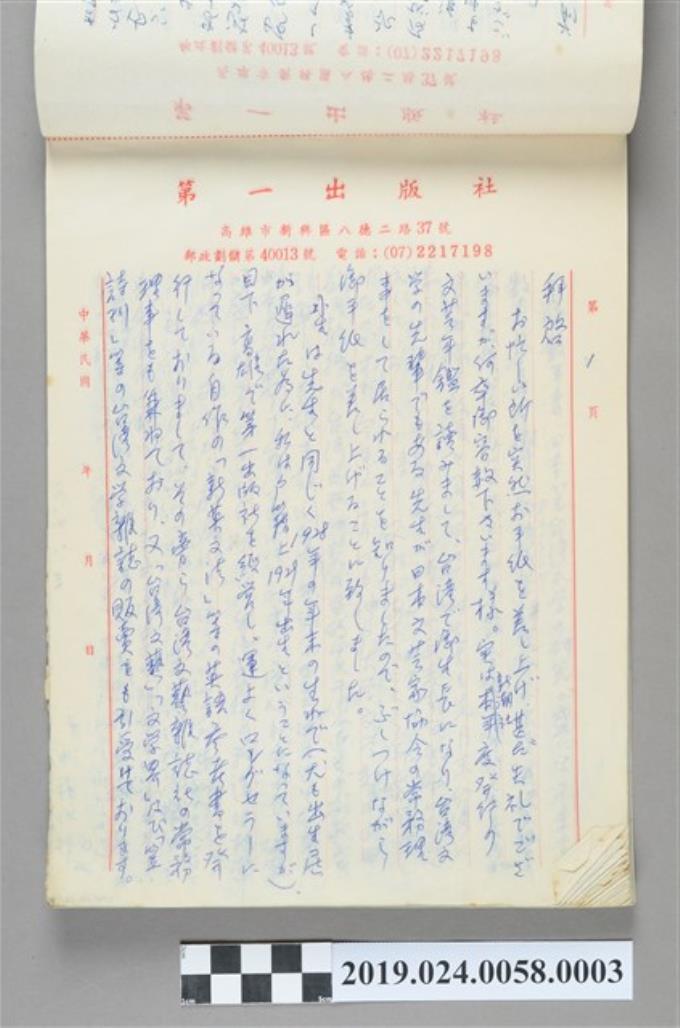 第一出版社
高雄市新興區八德二路37號
郵政劃儲第40013號 電話：(07)2217198
第 1 頁
拝啓
お忙しい所を突然お手紙を差し上げ甚だ失礼でござ
いますが、何卒御容赦下さいます様。実は新潮社 度発行の
文芸年鑑を読みまして、台湾で御生長になり、台湾文
学の先輩でもある先生が日本文芸家協会の常務理
事をして居られることを知りましたので、ぶしつけながら
御手紙を差し上げることに致しました。
小生は先生と同じく1928年の年末の生れで(尤も出生届
が遅れた為に、私は戸籍上1929年出生ということになっていますが)、
目下高雄で第一出版社を経営し、運よくロングセラーに
なっている自作の「新英文法」等の英語参考書を発
行しておりまして、その昔から台湾文藝雑誌社の常務
理事をも兼ねており、又「台湾文藝」「文学界」及び「笠
詩刊」等の台湾文学雑誌の販売をも引受けております。
中華民國 年 月 日
2019.024.0058.0003